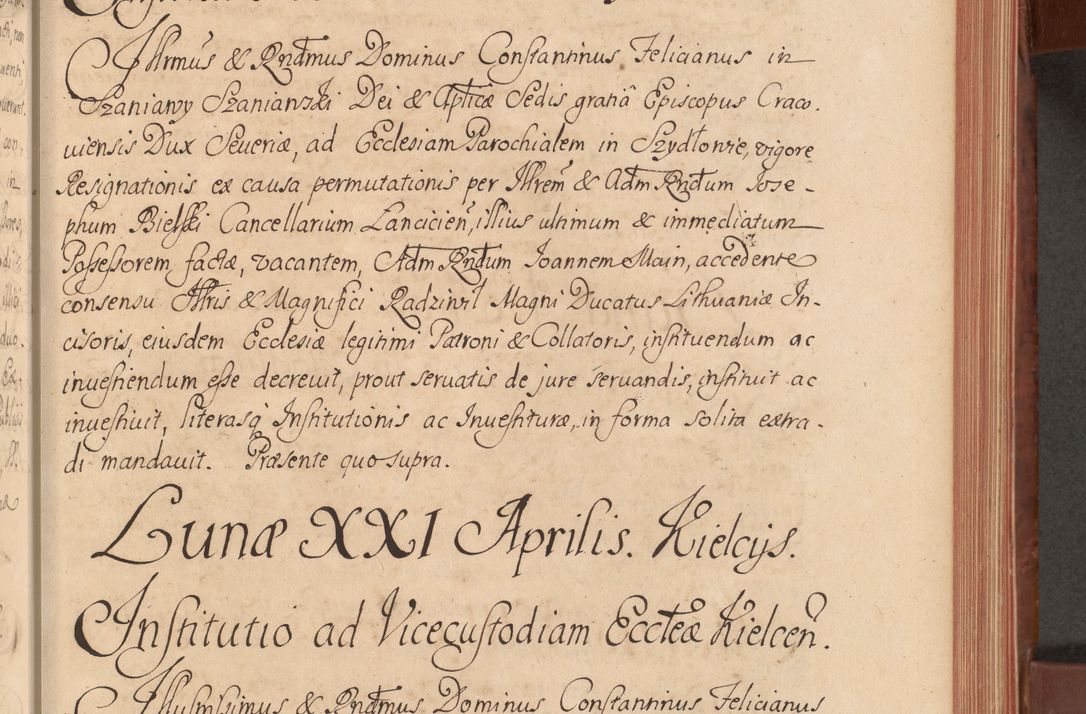 Illrmus & Rndmus Dominus Constantinus Felicianus in
Szaniawy Szaniawski Dei & Aplicæ Sedis gratiâ Episcopus Craco-
viensis Dux Severiæ, ad Ecclesiam Parochialem in Szydłowie, vigore
Resignationis ex causa permutationis per Illrem & Adm Rndum Iose-
phum Bielski Cancellarium Lancicien, illius ultimum & immediatum
Possessorem factæ, vacantem, Adm Rndum Ioannem Main, accedente
consensu Illris & Magnifici Radziwil Magni Ducatus Lithuaniæ In-
cisoris, eiusdem Ecclesiæ legitimi Patroni & Collatoris, instituendum ac
investiendum esse decrevit, prout servatis de jure servandis, instituit ac
investivit, literasq Institutionis ac Investituræ, in forma solita extra-
di mandavit. Præsente quo supra.
Lunæ XXI Aprilis. Kielcijs.
Institutio ad Vicecustodiam Eccleæ Kielcen.
Illusmissimus & Rndmus Dominus Constantinus Felicianus